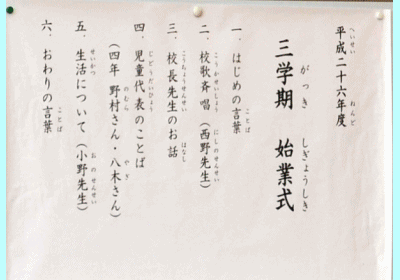 平成二十六年度
三学期 始業式
一、はじめの言葉
二、校歌斉唱（西野先生）
三、校長先生のお話
四、児童代表のことば
（四年 野村さん・八木さん）
五、生活について（小野先生）
六、おわりの言葉